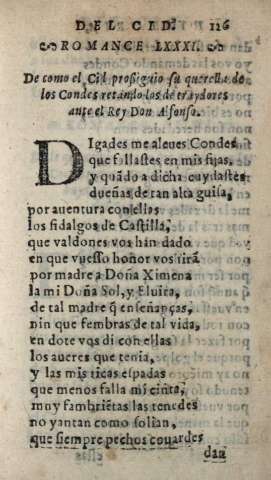 DEL CID. 126
ROMANCE LXXXI.
De como el Cid prosiguio su querella de
los Condes retando los de traydores
ante el Rey Don Alfonso.
DIgades me aleues Condes
que fallastes en mis fijas,
y quãdo a dicha cuydastes
dueñas de tan alta guisa,
por auentura con ellas
los fidalgos de Castilla,
que valdones vos hán dado
en que vuesso honor vos tirã
por madre a Doña Ximena
la mi Doña Sol, y Eluira,
de tal madre q̃ enseñanças,
nin que fembras de tal vida,
en dote vos di con ellas
los aueres que tenia,
y las mis ricas espadas
que menos falla mi cinta,
muy fambriẽtas las tenedes
no yantan como solian,
que siempre pechos couardes
dan